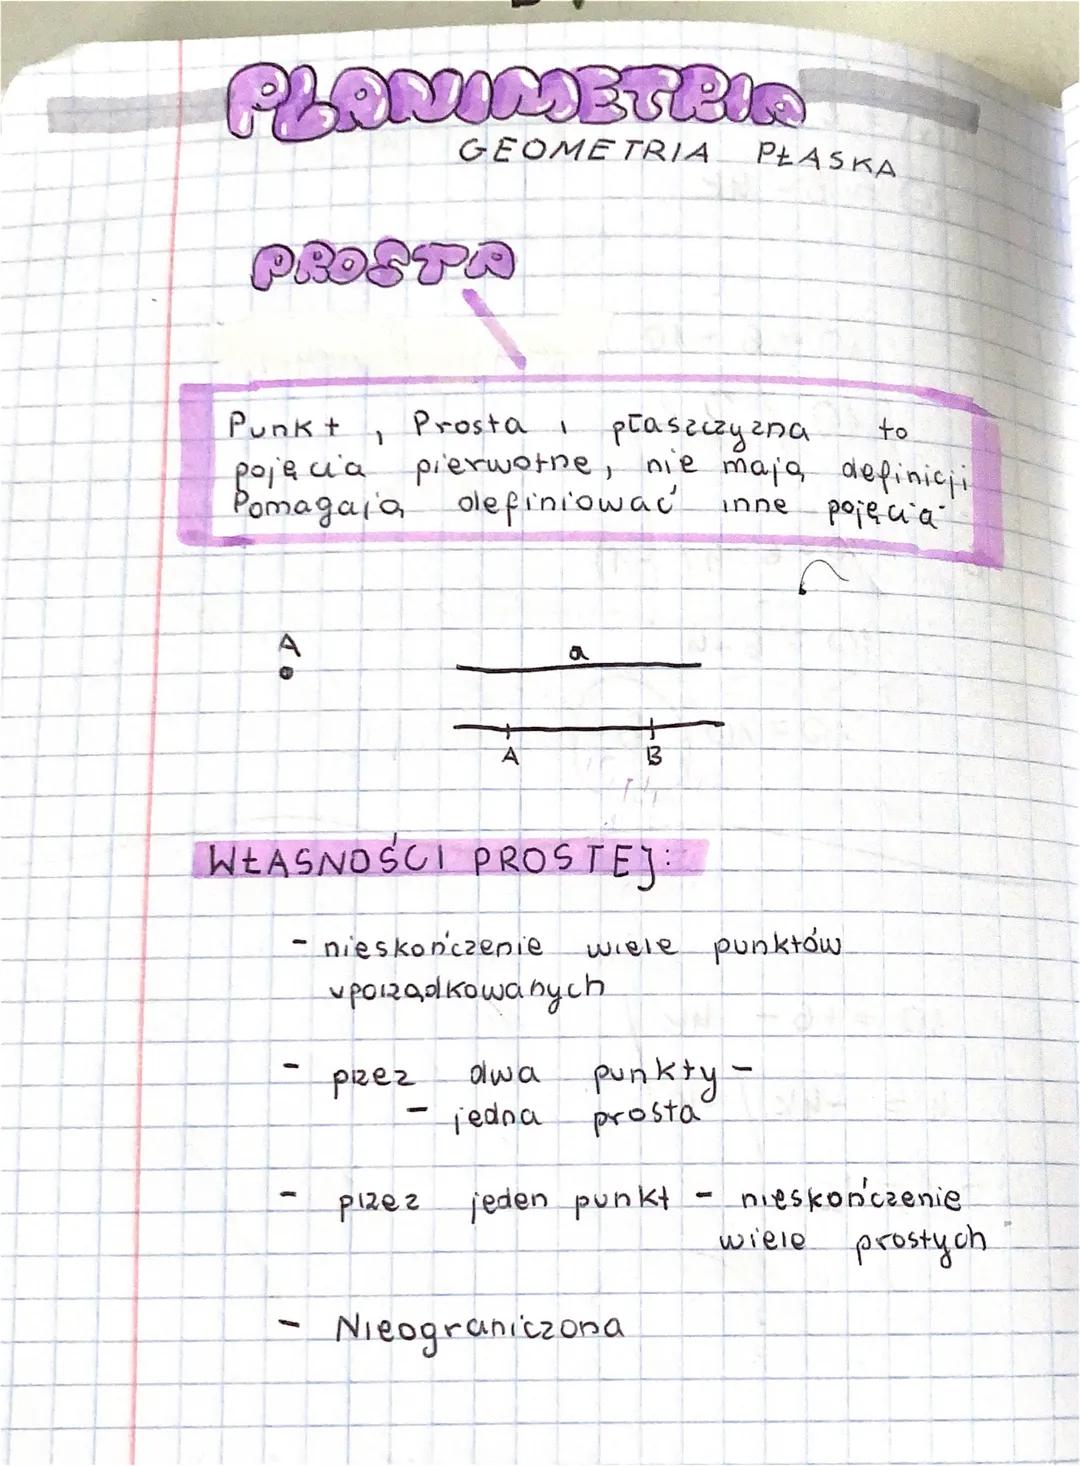 PLANIMETRIA
GEOMETRIA PŁASKA
PROSTA
Punkt, Prosta i płaszczyzna to
pojęcia pierwotne, nie mają definicji
Pomagają definiować inne pojęcia
A
a
A B
WŁASNOŚCI PROSTEJ:
- nieskończenie wiele punktów
uporządkowanych
- przez dwa punkty -
- jedna prosta
- przez jeden punkt - nieskończenie
wiele prostych
- Nieograniczona